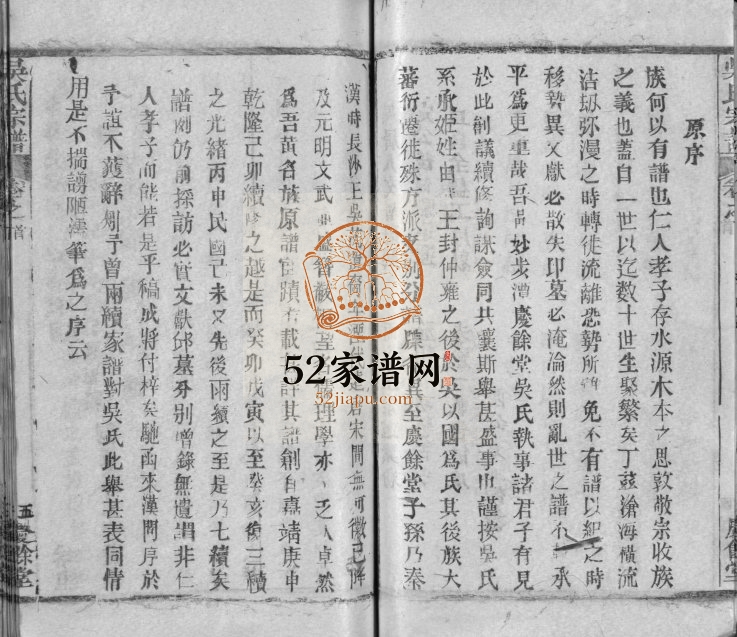 原序
族何以有譜也仁人孝子存水源木本之思敦敬宗收族
之義也蓋自一世以迄數十世生聚繁矣丁茲滄海橫流
浩劫弥漫之時轉徙流離恐勢所免不有譜以紀之時
移勢異文獻必散失邱墓必淹淪然則亂世之譜不承
平爲更重哉吾邑妙步漕慶餘堂吳氏執事諸君子有見
於此創議續修詢謀僉同共襄斯舉甚盛事也謹按吳氏
系承姬姓由王封仲雍之後於吳以國爲氏其後族大
蕃衍遷徙殊方派至慶餘堂子孫乃秦
漢時長沙王吳唐宋間無可徵已降
及元明文武理學亦乏人卓然
爲吾黄名族原譜載計其譜創自嘉靖庚申
乾隆己卯續修之越是而癸卯戊寅以至癸亥復三續
之光緒丙申民國己未又先後兩續之至是乃七續矣
譜例仍前採訪必實文獻邱墓分别增錄無遺非仁
人孝子而能若是乎稿成將付梓矣馳函來漢問序於
予誼不獲辭剏予曾兩續家譜對吳氏此舉甚表同情
用是不揣謭陋濡筆爲之序云
吳氏宗譜
五
慶餘堂
52家谱网
52jiapu.com